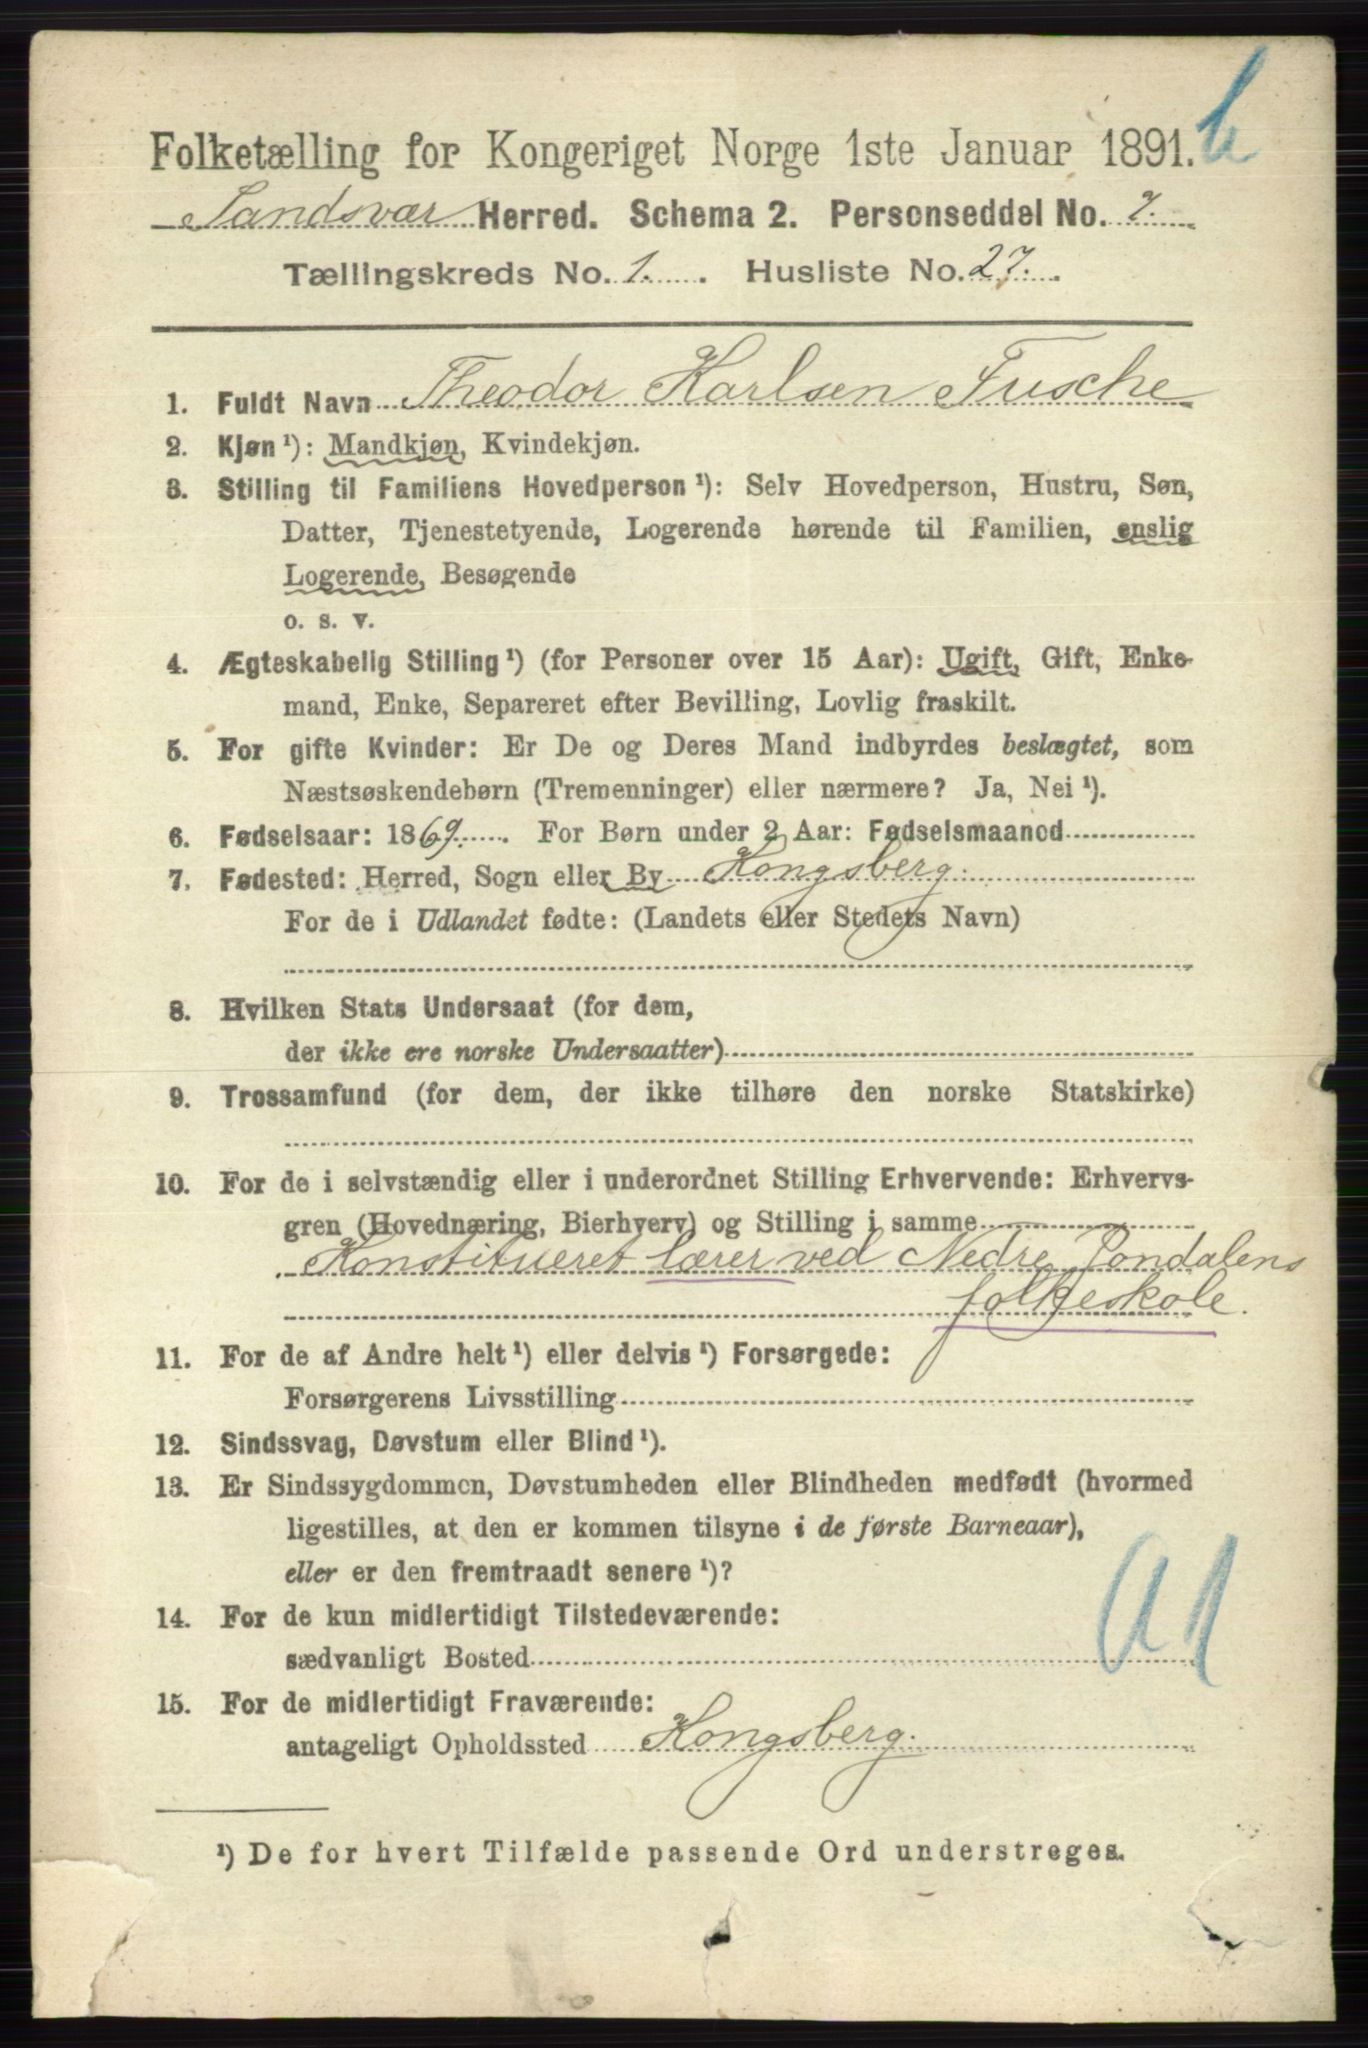 Folketælling for Kongeriget Norge 1ste Januar 1891.
Sandsvær Herred. Schema 2. Personseddel No. 7.
Tællingskreds No. 1. Husliste No. 27.
1. Fuldt Navn Theodor Karlsen Fusche
2. Kjøn ¹): Mandkjøn, Kvindekjøn.
3. Stilling til Familiens Hovedperson ¹): Selv Hovedperson, Hustru, Søn,
Datter, Tjenestetyende, Logerende hørende til Familien, enslig
Logerende, Besøgende
o. s. v.
4. Ægteskabelig Stilling ¹) (for Personer over 15 Aar): Ugift, Gift, Enke-
mand, Enke, Separeret efter Bevilling, Lovlig fraskilt.
5. For gifte Kvinder: Er De og Deres Mand indbyrdes beslægtet, som
Næstsøskendebørn (Tremenninger) eller nærmere? Ja, Nei ¹).
6. Fødselsaar: 1869. For Børn under 2 Aar: Fødselsmaaned
7. Fødested: Herred, Sogn eller By Kongsberg.
For de i Udlandet fødte: (Landets eller Stedets Navn)
8. Hvilken Stats Undersaat (for dem,
der ikke ere norske Undersaatter)
9. Trossamfund (for dem, der ikke tilhøre den norske Statskirke)
10. For de i selvstændig eller i underordnet Stilling Erhvervende: Erhvervs-
gren (Hovednæring, Bierhverv) og Stilling i samme
Konstitueret lærer ved Nedre Jondalens
folkeskole.
11. For de af Andre helt ¹) eller delvis ¹) Forsørgede:
Forsørgerens Livsstilling
12. Sindssvag, Døvstum eller Blind ¹).
13. Er Sindssygdommen, Døvstumheden eller Blindheden medfødt (hvormed
ligestilles, at den er kommen tilsyne i de første Barneaar),
eller er den fremtraadt senere ¹)?
14. For de kun midlertidigt Tilstedeværende:
sædvanligt Bosted
15. For de midlertidigt Fraværende:
antageligt Opholdssted Kongsberg.
¹) De for hvert Tilfælde passende Ord understreges.